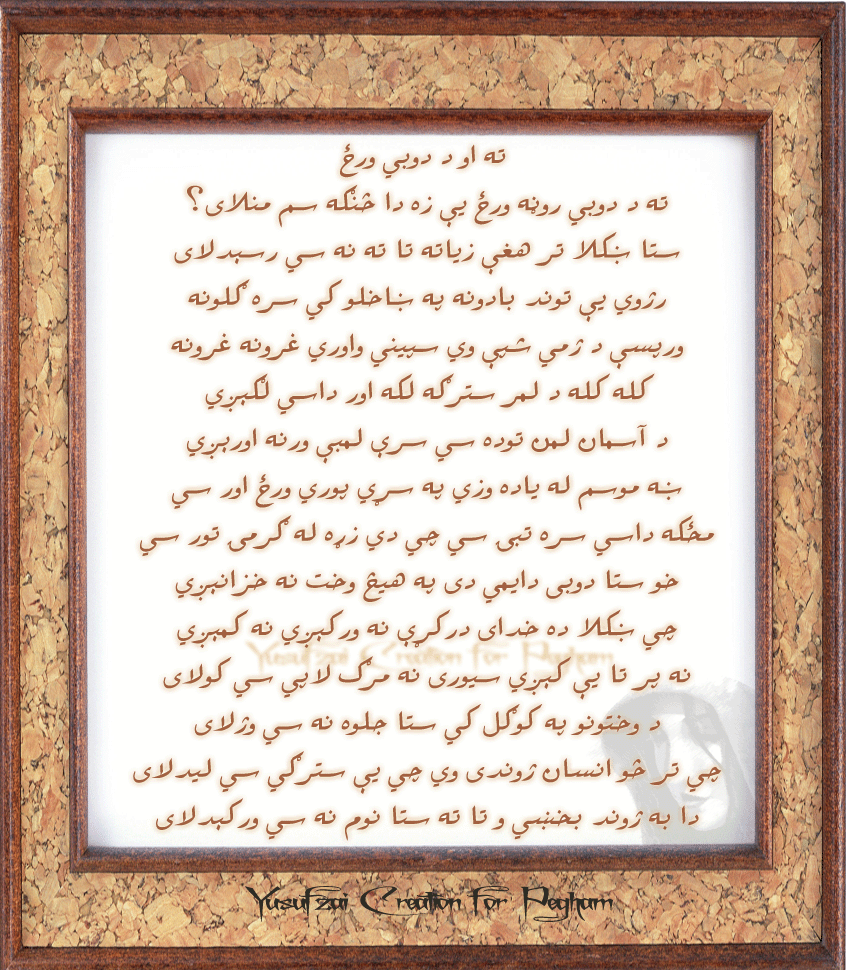 ته او د دوبي ورځ
ته د دوبي روڼه ورځ يې زه دا څنګه سم منلای؟
ستا ښکلا تر هغې زياته تا ته نه سي رسېدلای
رژوي يې توند بادونه په ښاخلو کي سره ګلونه
ورپسې د ژمي شپې وي سپيني واوري غرونه غرونه
کله کله د لمر سترګه لکه اور داسي لګېږي
د آسمان لمن توده سي سرې لمبې ورنه اورېږي
ښه موسم له ياده وزي په سړي پوري ورځ اور سي
مځکه داسي سره تبۍ سي چي دي زړه له ګرمۍ تور سي
خو ستا دوبی دايمي دی په هيڅ وخت نه خزانېږي
چي ښکلا ده خدای درکړې نه ورکېږي نه کمېږي
نه پر تا يې کېږي سيوری نه مرګ لاپي سي کولای
د وختونو په کوګل کي ستا جلوه نه سي وژلای
چي تر څو انسان ژوندی وي چي يې سترګي سي ليدلای
دا به ژوند بخښي و تا ته ستا نوم نه سي ورکېدلای
Yusufzai Creation For Pegham
Yusufzai Creation For Pegham